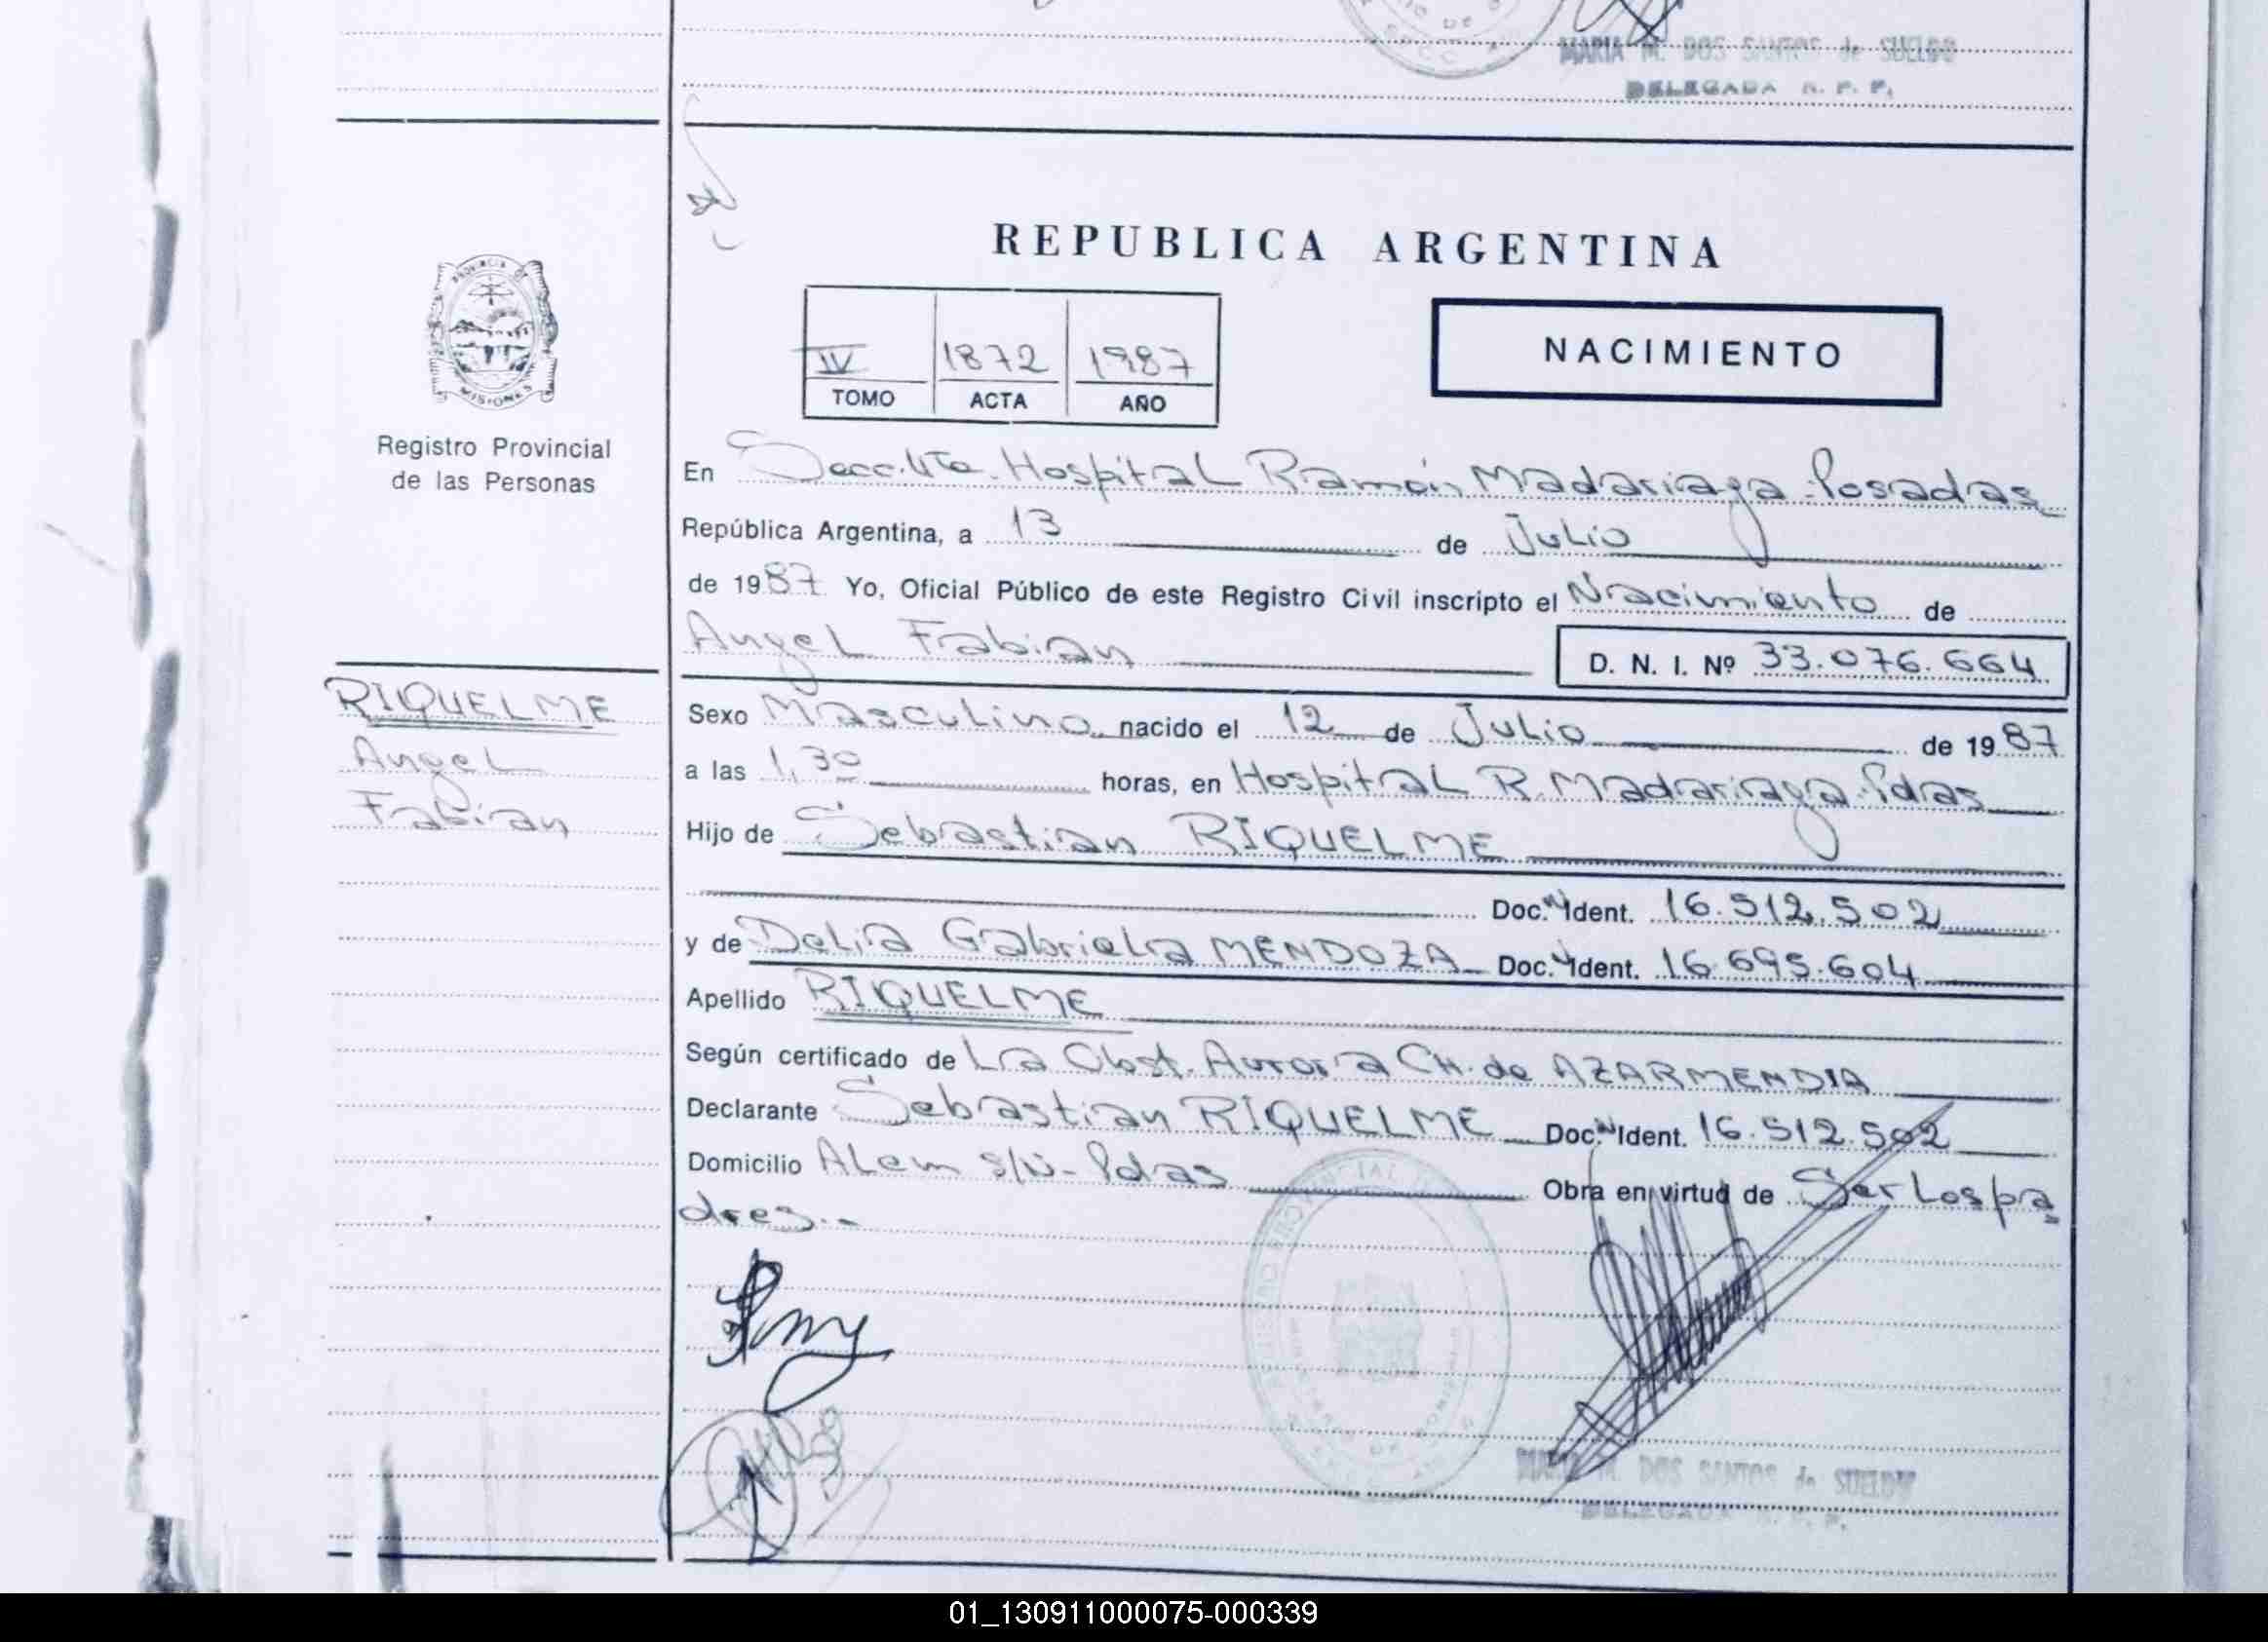 MARIA M. DOS SANTOS de SUELDO
DELEGADA R. P. P.
REPUBLICA ARGENTINA
PROVINCIA DE
MISIONES
Registro Provincial
de las Personas
IV 1872 1987
TOMO ACTA AÑO
NACIMIENTO
En Secc. 4ta. Hospital Ramón Madariaga - Posadas
República Argentina, a 13 de Julio
de 1987 Yo, Oficial Público de este Registro Civil inscripto el Nacimiento de
Angel Fabian D. N. I. Nº 33.076.664
RIQUELME
Angel
Fabian
Sexo Masculino nacido el 12 de Julio de 1987
a las 1,30 horas, en Hospital R. Madariaga. Pdas
Hijo de Sebastian RIQUELME
Doc. Ident. 16.512.502
y de Delia Gabriela MENDOZA Doc. Ident. 16.695.604
Apellido RIQUELME
Según certificado de La Obst. Aurora CH. de AZARMENDIA
Declarante Sebastian RIQUELME Doc. Ident. 16.512.502
Domicilio ALem s/N - Pdas Obra en virtud de Ser Los pa
dres.-
MARIA M. DOS SANTOS de SUELDO
DELEGADA R. P. P.
01_130911000075-000339